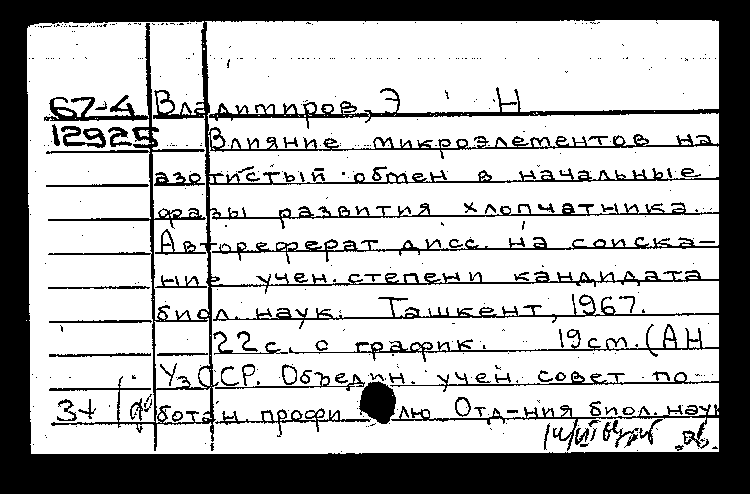 67-4 Владимиров, Э Н
12925 Влияние микроэлементов на
азотистый обмен в начальные
фазы развития хлопчатника.
Автореферат дисс. на соиска-
ние учен. степени кандидата
биол. наук. Ташкент, 1967.
22 с. с график. 19 см. (АН
УзССР. Объедин. учен. совет по
3+ ботан. профилю Отд-ния биол. наук